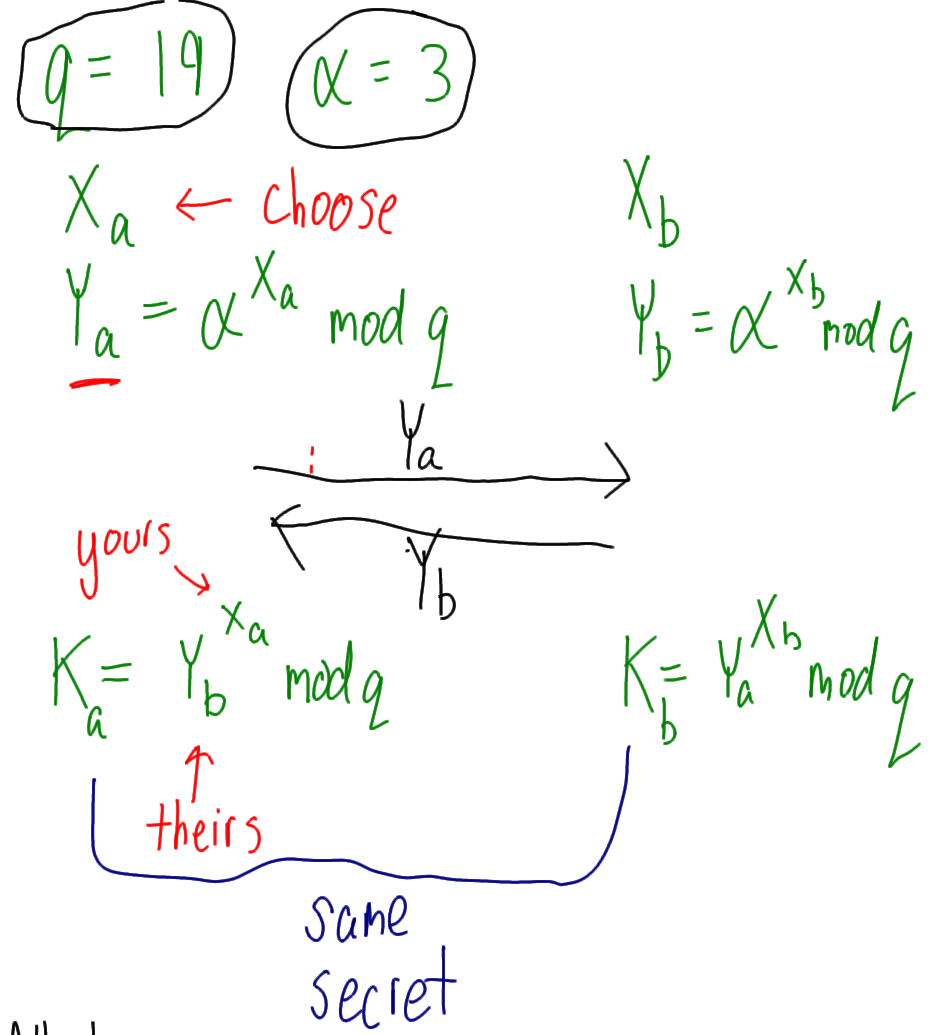 q = 19 α = 3
Xₐ ← choose X_b
Yₐ = α^Xₐ mod q Y_b = α^X_b mod q
Yₐ
Y_b
yours
Kₐ = Y_b^Xₐ mod q K_b = Yₐ^X_b mod q
theirs
same
secret